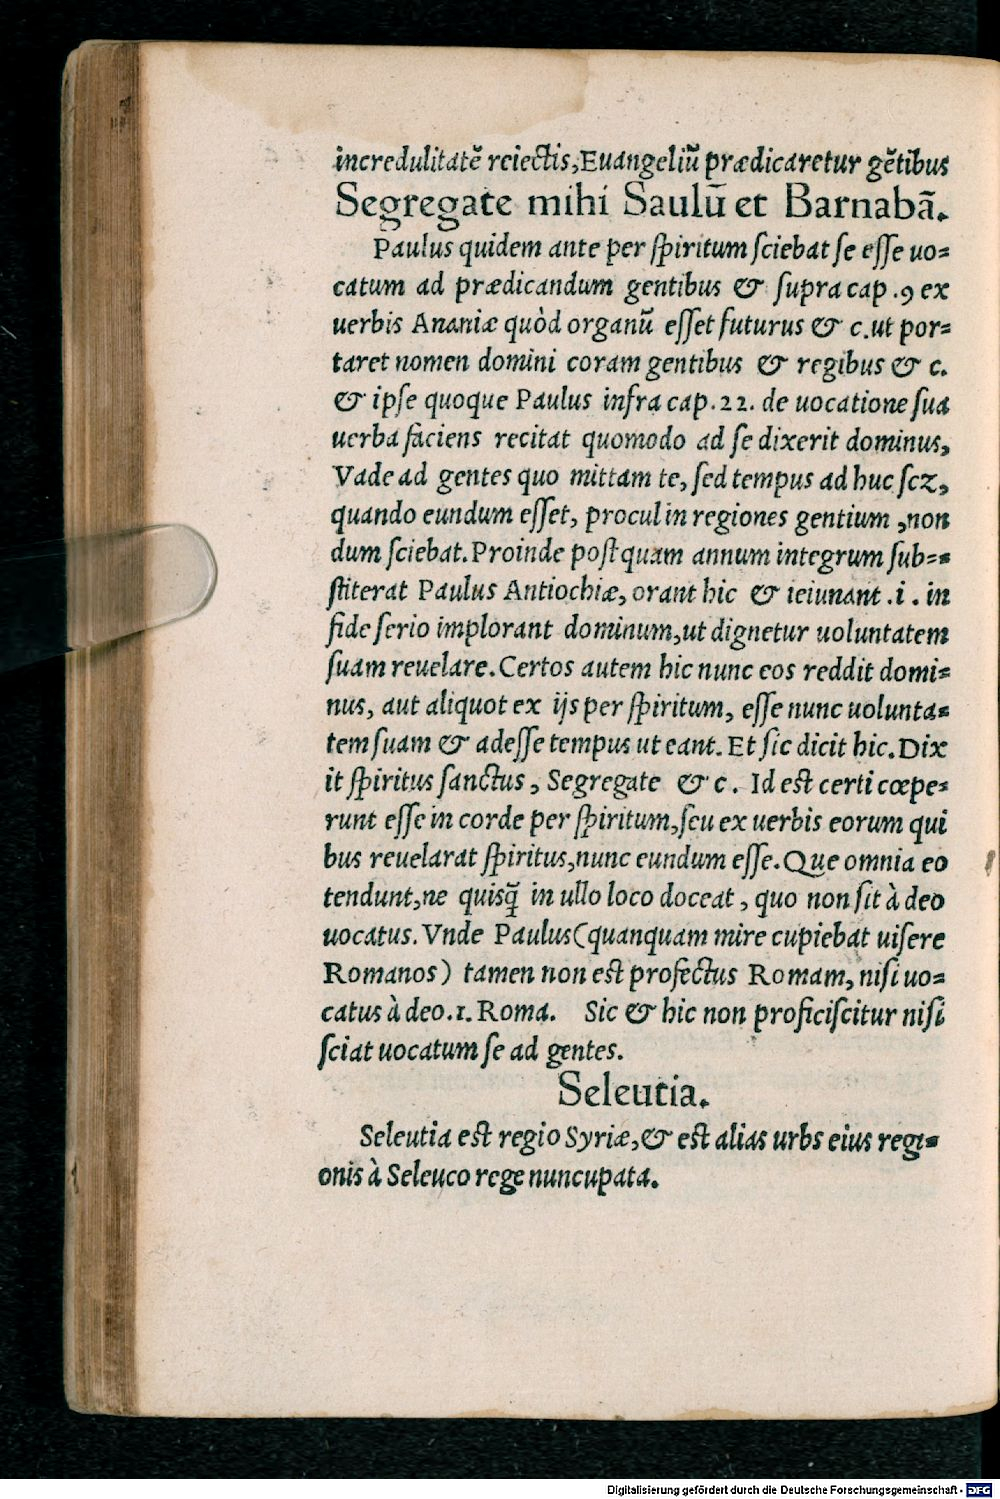 incredulitatẽ reiectis, Euangeliũ prædicaretur gẽtibus
Segregate mihi Saulũ et Barnabã.
Paulus quidem ante per spiritum sciebat se esse uo=
catum ad prædicandum gentibus & supra cap .9 ex
uerbis Ananiæ quòd organũ esset futurus & c. ut por=
taret nomen domini coram gentibus & regibus & c.
& ipse quoque Paulus infra cap. 22. de uocatione sua
uerba faciens recitat quomodo ad se dixerit dominus,
Vade ad gentes quo mittam te, sed tempus ad huc scz,
quando eundum esset, procul in regiones gentium ,non
dum sciebat. Proinde postquam annum integrum sub=
stiterat Paulus Antiochiæ, orant hic & ieiunant .i. in
fide serio implorant dominum, ut dignetur uoluntatem
suam reuelare. Certos autem hic nunc eos reddit domi=
nus, aut aliquot ex ijs per spiritum, esse nunc uolunta=
tem suam & adesse tempus ut eant. Et sic dicit hic. Dix
it spiritus sanctus , Segregate & c . Id est certi cœpe=
runt esse in corde per spiritum, seu ex uerbis eorum qui
bus reuelarat spiritus, nunc eundum esse. Que omnia eo
tendunt, ne quisq̃ in ullo loco doceat , quo non sit à deo
uocatus. Vnde Paulus (quanquam mire cupiebat uisere
Romanos) tamen non est profectus Romam, nisi uo=
catus à deo. 1. Roma. Sic & hic non proficiscitur nisi
sciat uocatum se ad gentes.
Seleutia.
Seleutia est regio Syriæ, & est alias urbs eius regi=
onis à Seleuco rege nuncupata.
Digitalisierung gefördert durch die Deutsche Forschungsgemeinschaft - DFG